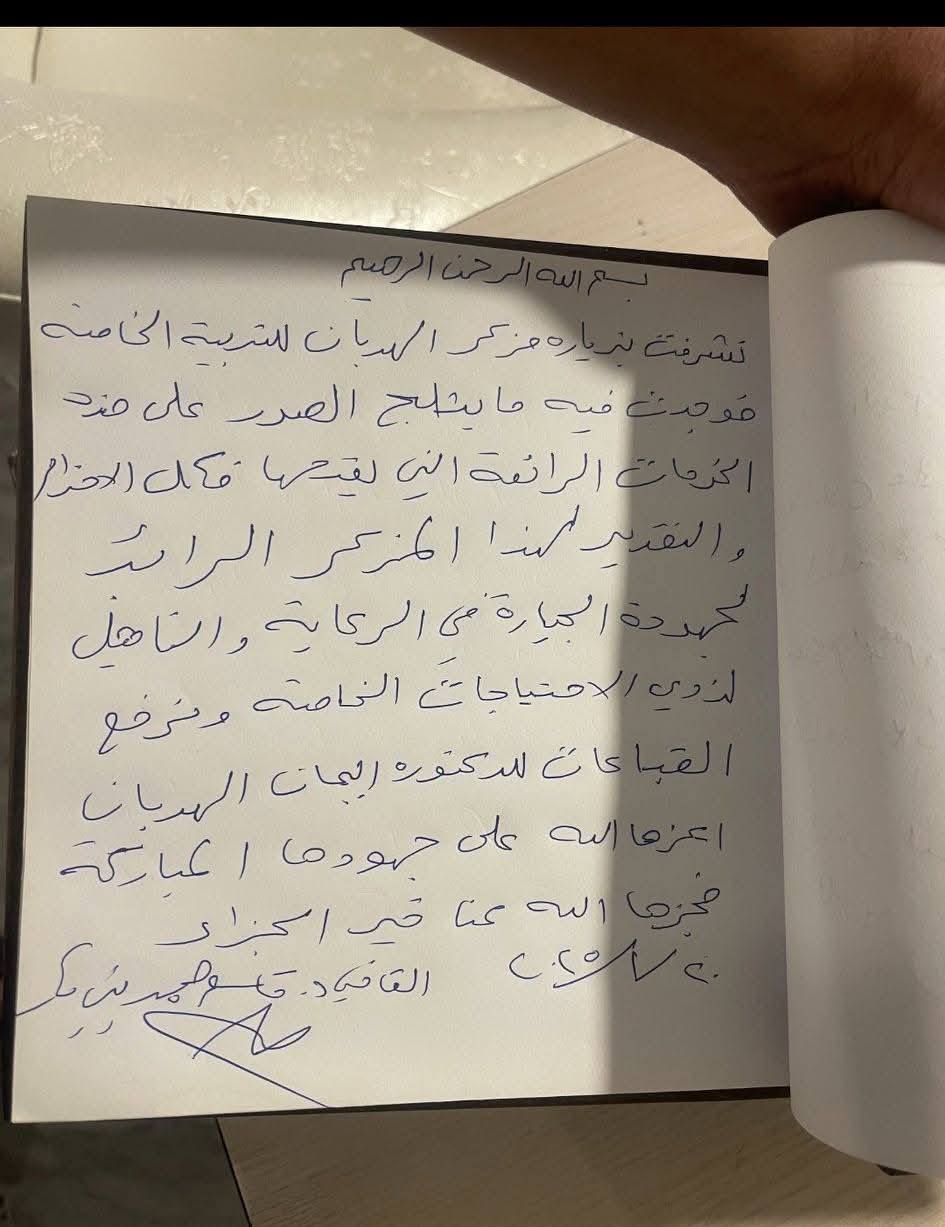 بسم الله الرحمن الرحيم
تشرفت بزياره مركز الهدبان للتربية الخاصة
فوجدت فيه ما يثلج الصدر على
الخدمات الرائعة التي يقدمها فكل الاحترام
والتقدير لهذا المركز الرائد
لجهوده الجبارة في الرعاية والتاهيل
لذوي الاحتياجات الخاصة ونرفع
القباعات للدكتوره ايمان الهدبان
اعزها الله على جهودها المباركة
فجزها الله عنا خير الجزاء
٢٠/٧/٢٠٢٥
القاضي د. قاسم محمد بني بكر